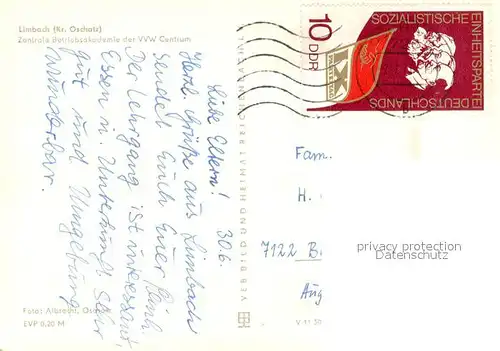 Limbach (Kr. Oschatz)
Zentrale Betriebsakademie der VVW Centrum
30.6.
Liebe Eltern!
Herzl. Grüße aus Limbach
sendet Euch Euer
Der Lehrgang ist interessant,
Essen u. Unterbring. sehr
gut und Umgebung
wunderbar.
Foto: Albrecht, Oschatz
EVP 0,20 M
10
DDR
SOZIALISTISCHE
EINHEITSPARTEI
DEUTSCHLANDS
Fam.
H.
7122 B
Aug
V 11 50
privacy protection
Datenschutz